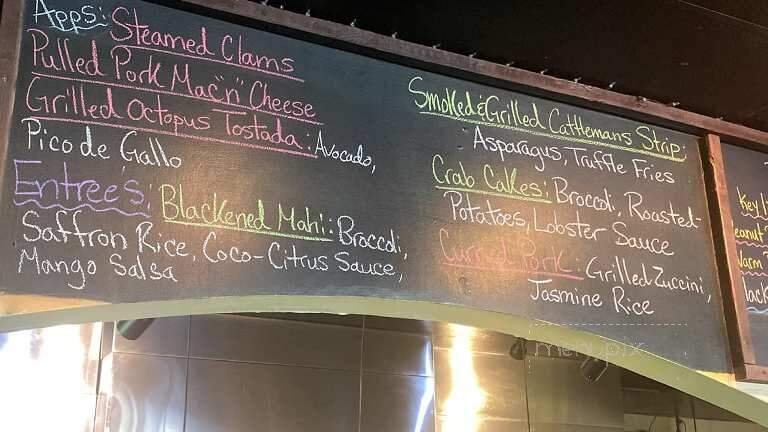 Apps: Steamed Clams
Pulled Pork Mac "n" Cheese
Grilled Octopus Tostada: Avocado,
Pico de Gallo
Entree's: Blackened Mahi: Broccoli,
Saffron Rice, Coco-Citrus Sauce,
Mango Salsa
Smoked & Grilled Cattlemans Strip:
Asparagus, Truffle Fries
Crab Cakes: Broccoli, Roasted
Potatoes, Lobster Sauce
Curried Pork: Grilled Zuccini,
Jasmine Rice
Key
menupix